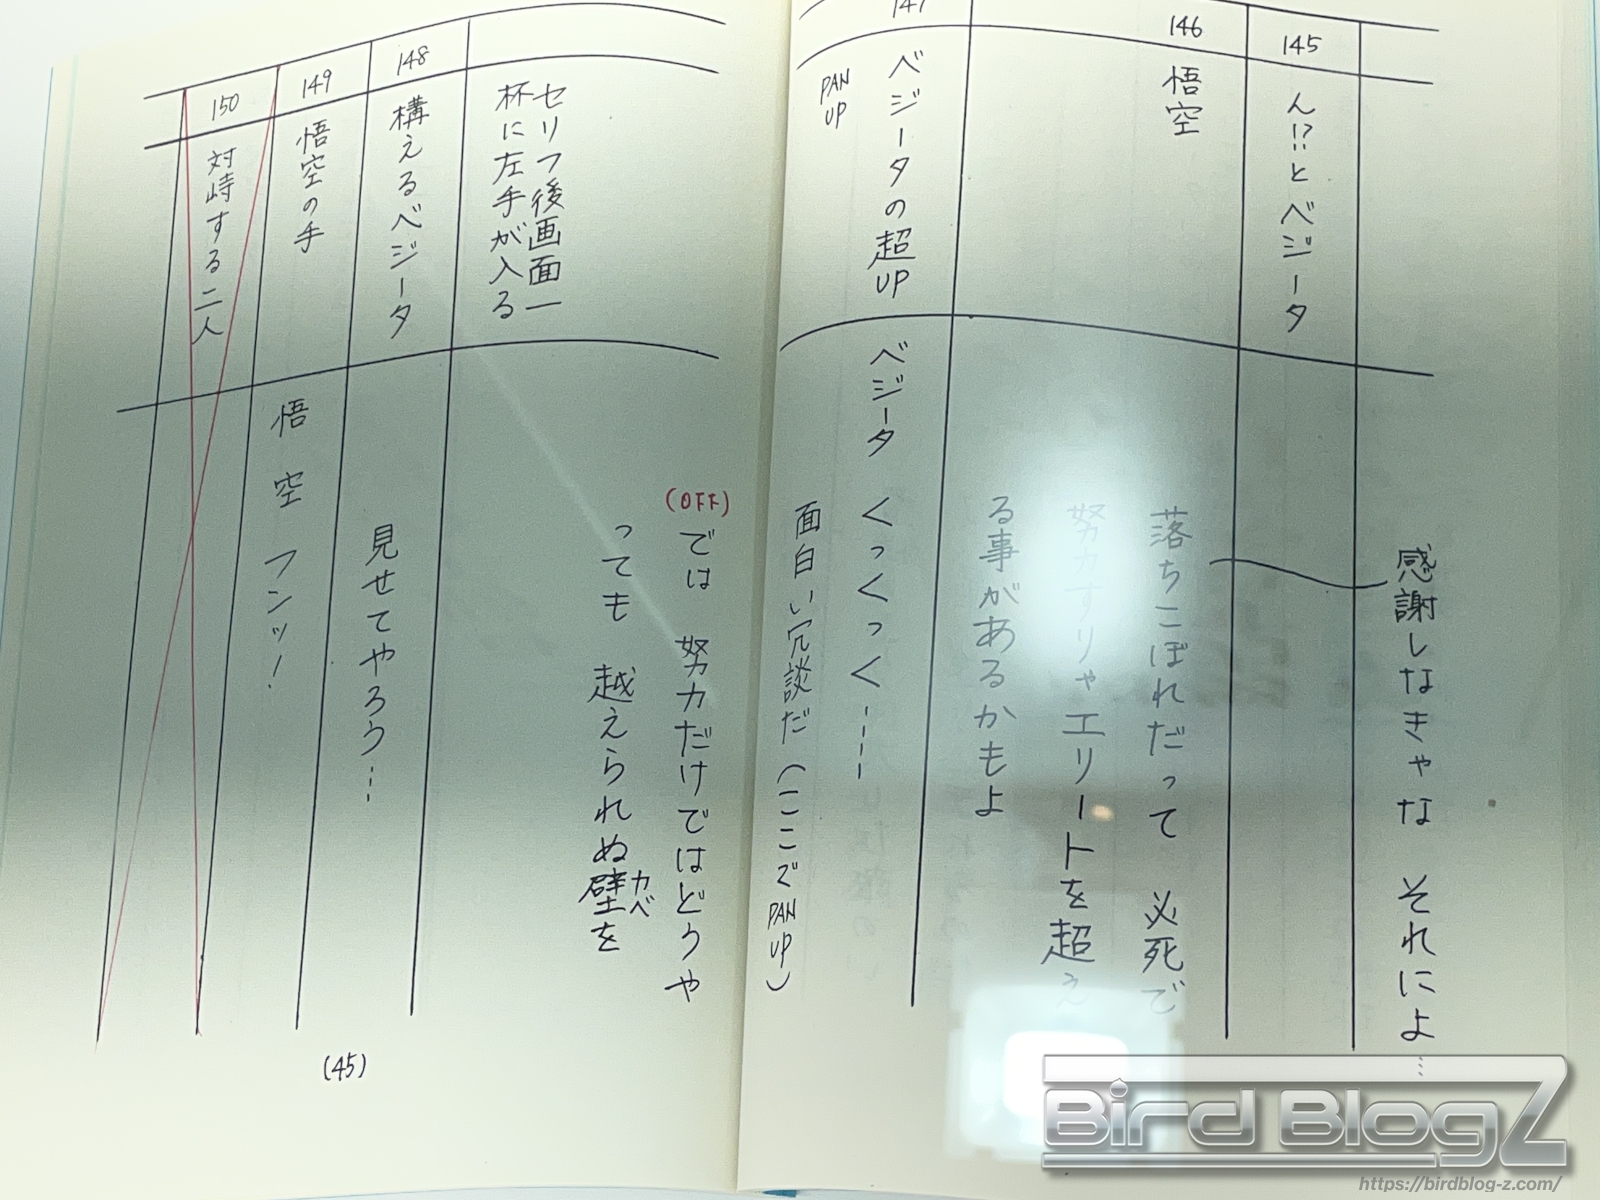 感謝しなきゃな それによ…
145
ん!?とベジータ
146
悟空
落ちこぼれだって 必死で
努力すりゃエリートを超え
る事があるかもよ
147
ベジータの超UP
PAN
UP
ベジータ くっくっく----
面白い冗談だ(ここでPAN UP)
セリフ後画面一
杯に左手が入る
(OFF)
では 努力だけではどうや
っても 越えられぬ壁を
カベ
148
構えるベジータ
見せてやろう---
149
悟空の手
悟空 フンッ!
150
対峙する二人
(45)
Bird Blog Z
https://birdblog-z.com/